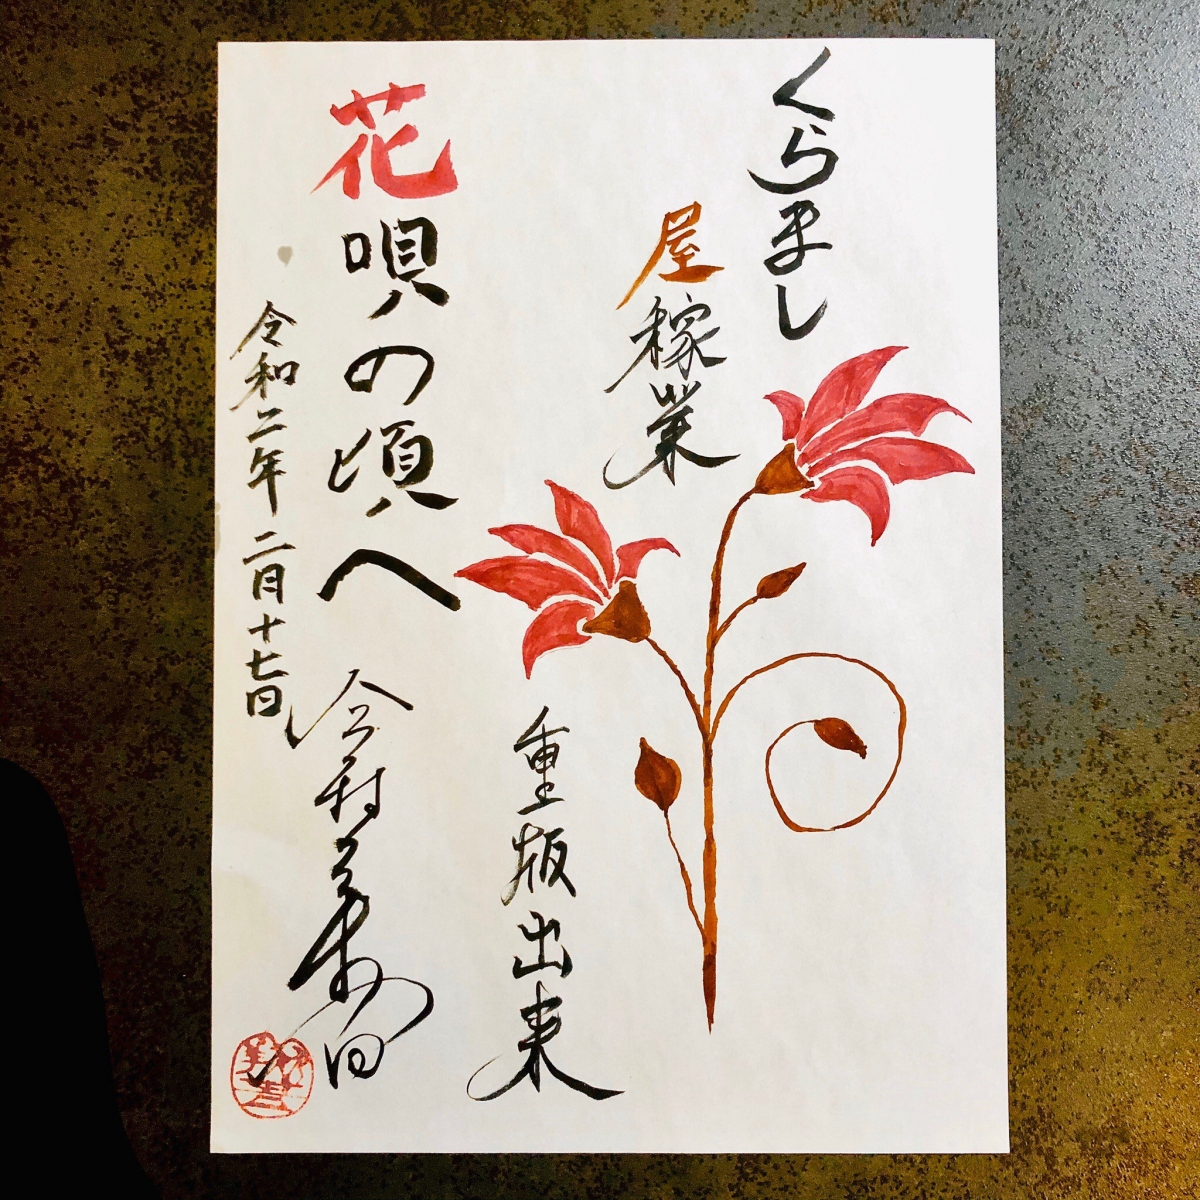 くらまし
屋稼業
重版出来
花唄の頃へ
今村翔吾
令和二年二月十七日